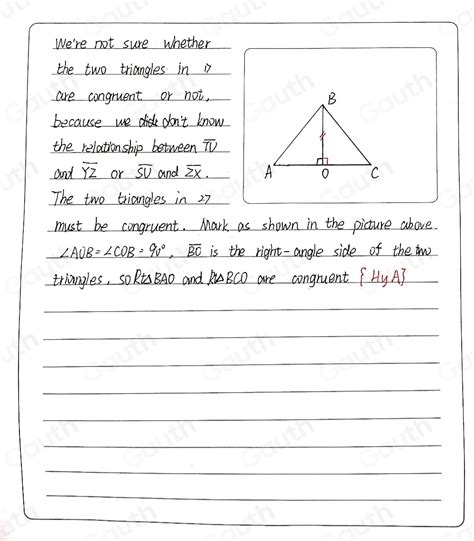 We're not sure whether
the two triangles in 1)
are congruent or not,
because we don't know
the relationship between TU
and YZ or SU and ZX.
The two triangles in 2)
must be congruent. Mark as shown in the picture above.
∠AOB = ∠COB = 90°, BO is the right-angle side of the two
triangles, so Rt△BAO and Rt△BCO are congruent {HyA}
B
A
O
C
Gauth